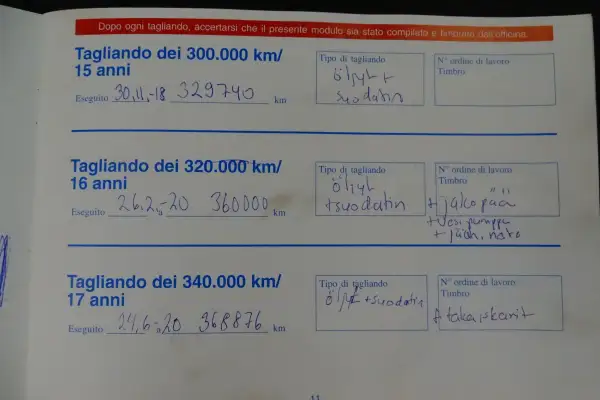 Dopo ogni tagliando, accertarsi che il presente modulo sia stato compilato e timbrato dall'officina.
Tagliando dei 300.000 km/
15 anni
Eseguito 30,11,-18 329740 km
Tipo di tagliando
öljyt +
suodatin
N° ordine di lavoro
Timbro
Tagliando dei 320.000 km/
16 anni
Eseguito 26,2,-20 360000 km
Tipo di tagliando
öljyt
+suodatin
N° ordine di lavoro
Timbro
+ jakopää
+ vesipumppu
+ jääh. neste
Tagliando dei 340.000 km/
17 anni
Eseguito 24,6-20 368876 km
Tipo di tagliando
öljyt +suodatin
N° ordine di lavoro
Timbro
+ takaiskarit
11